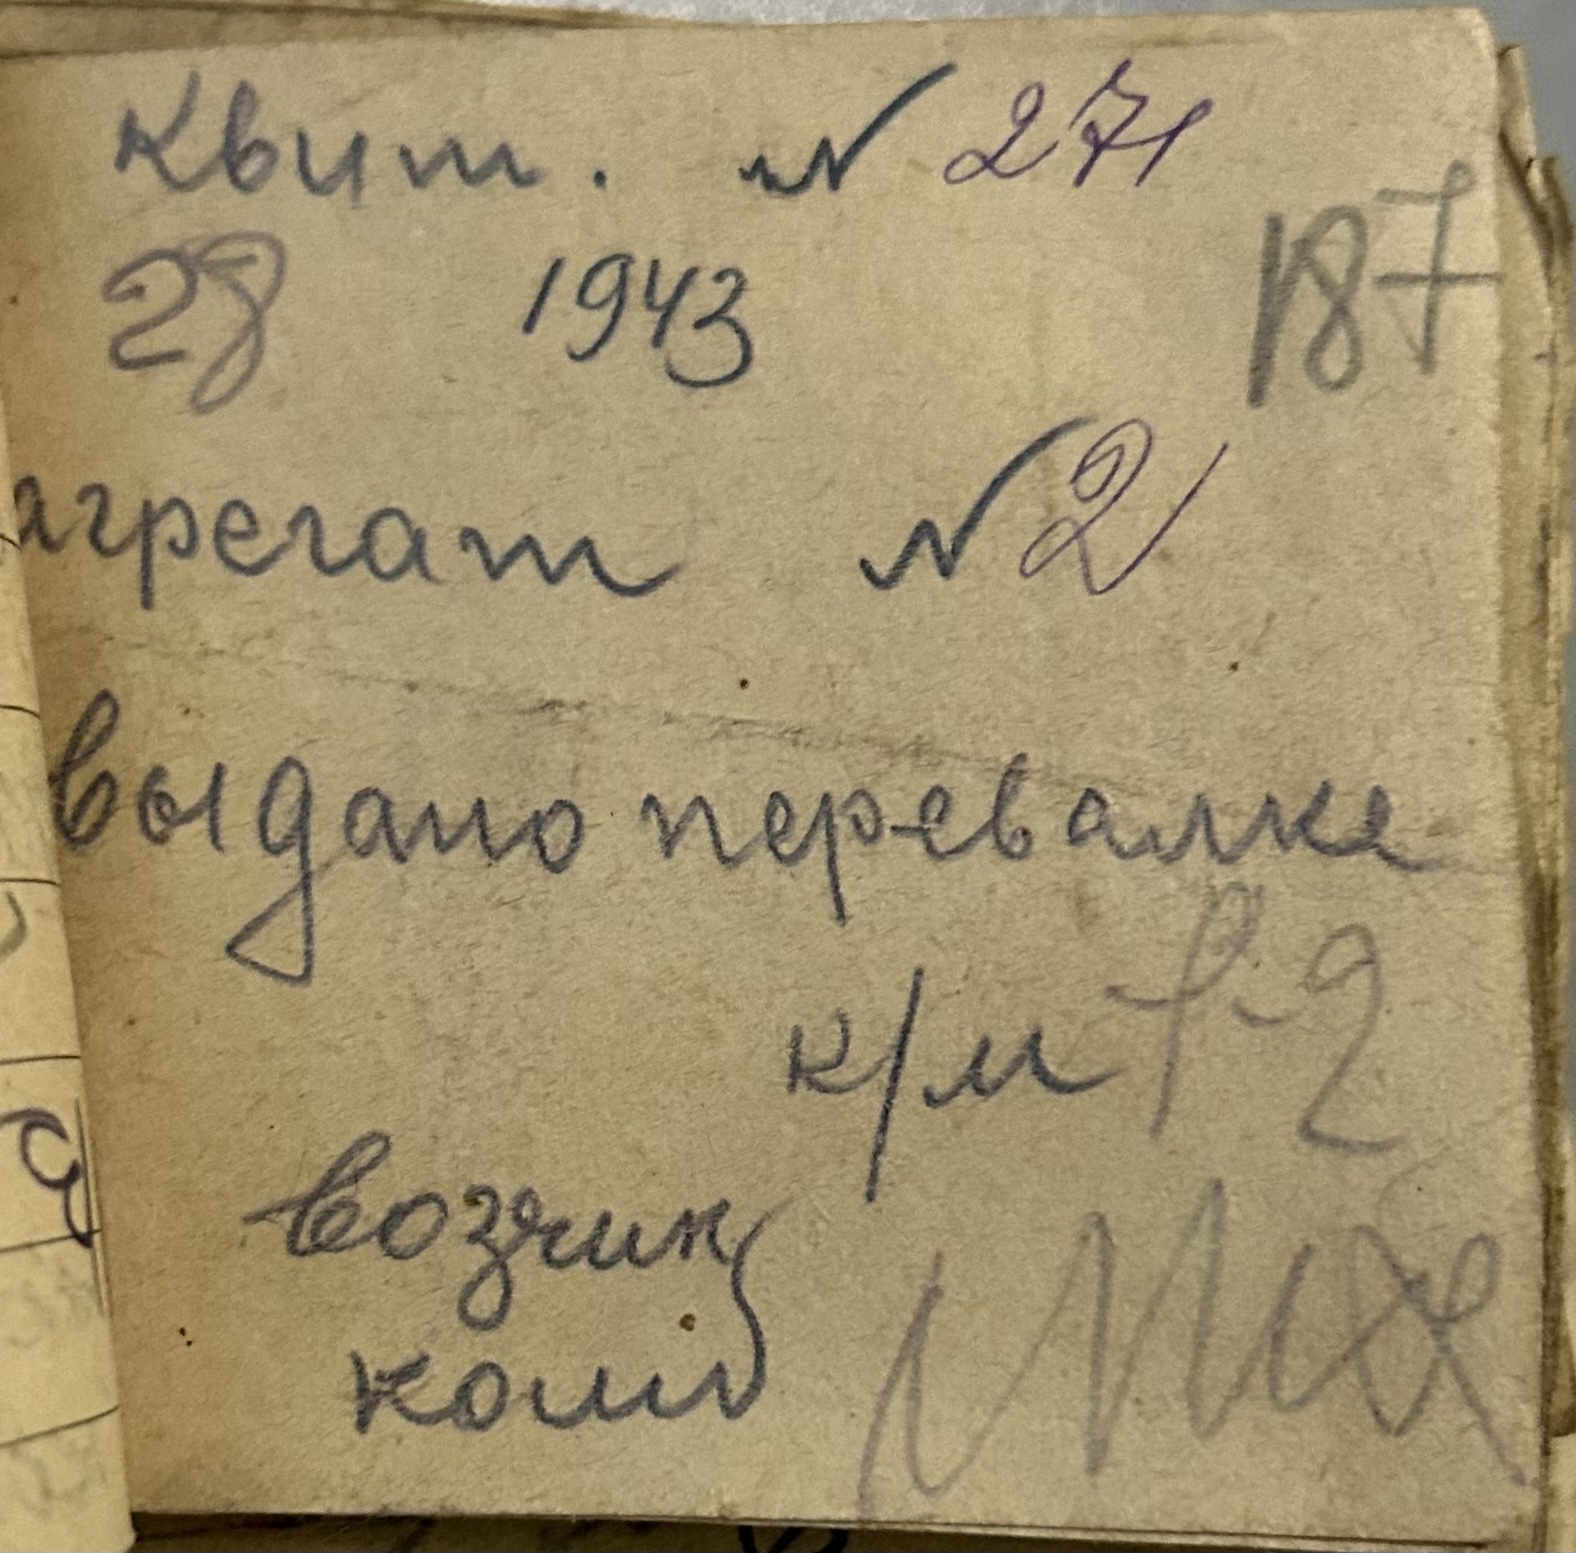 Квит. № 271
28 1943 187
агрегат № 2
выдано перевалке
к/м
возчик
комб